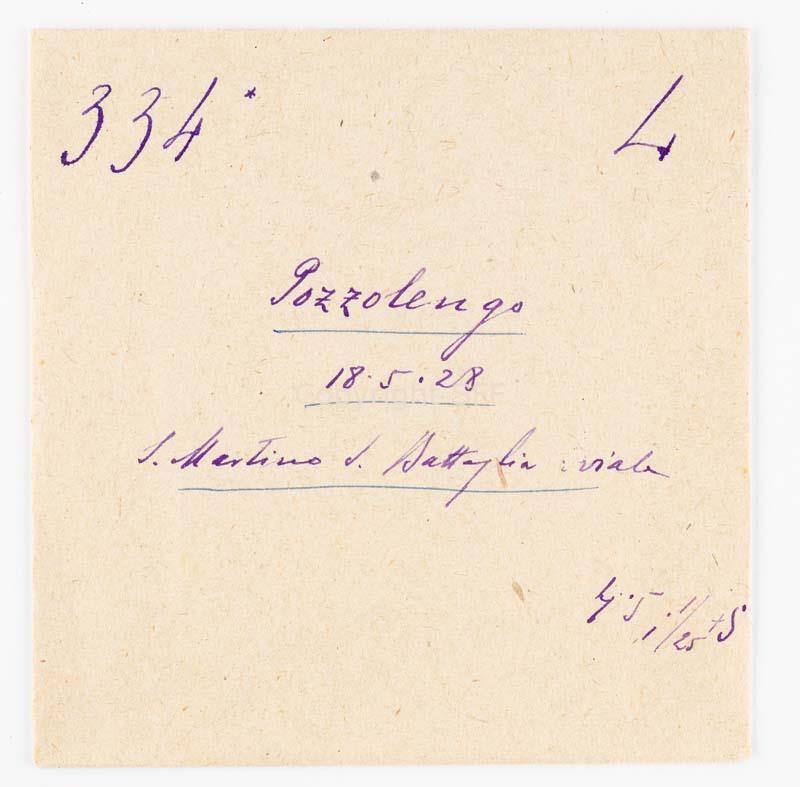 334* L
Pozzolengo
18.5.28
S. Martino d. Battaglia viale
5 1/25 +S